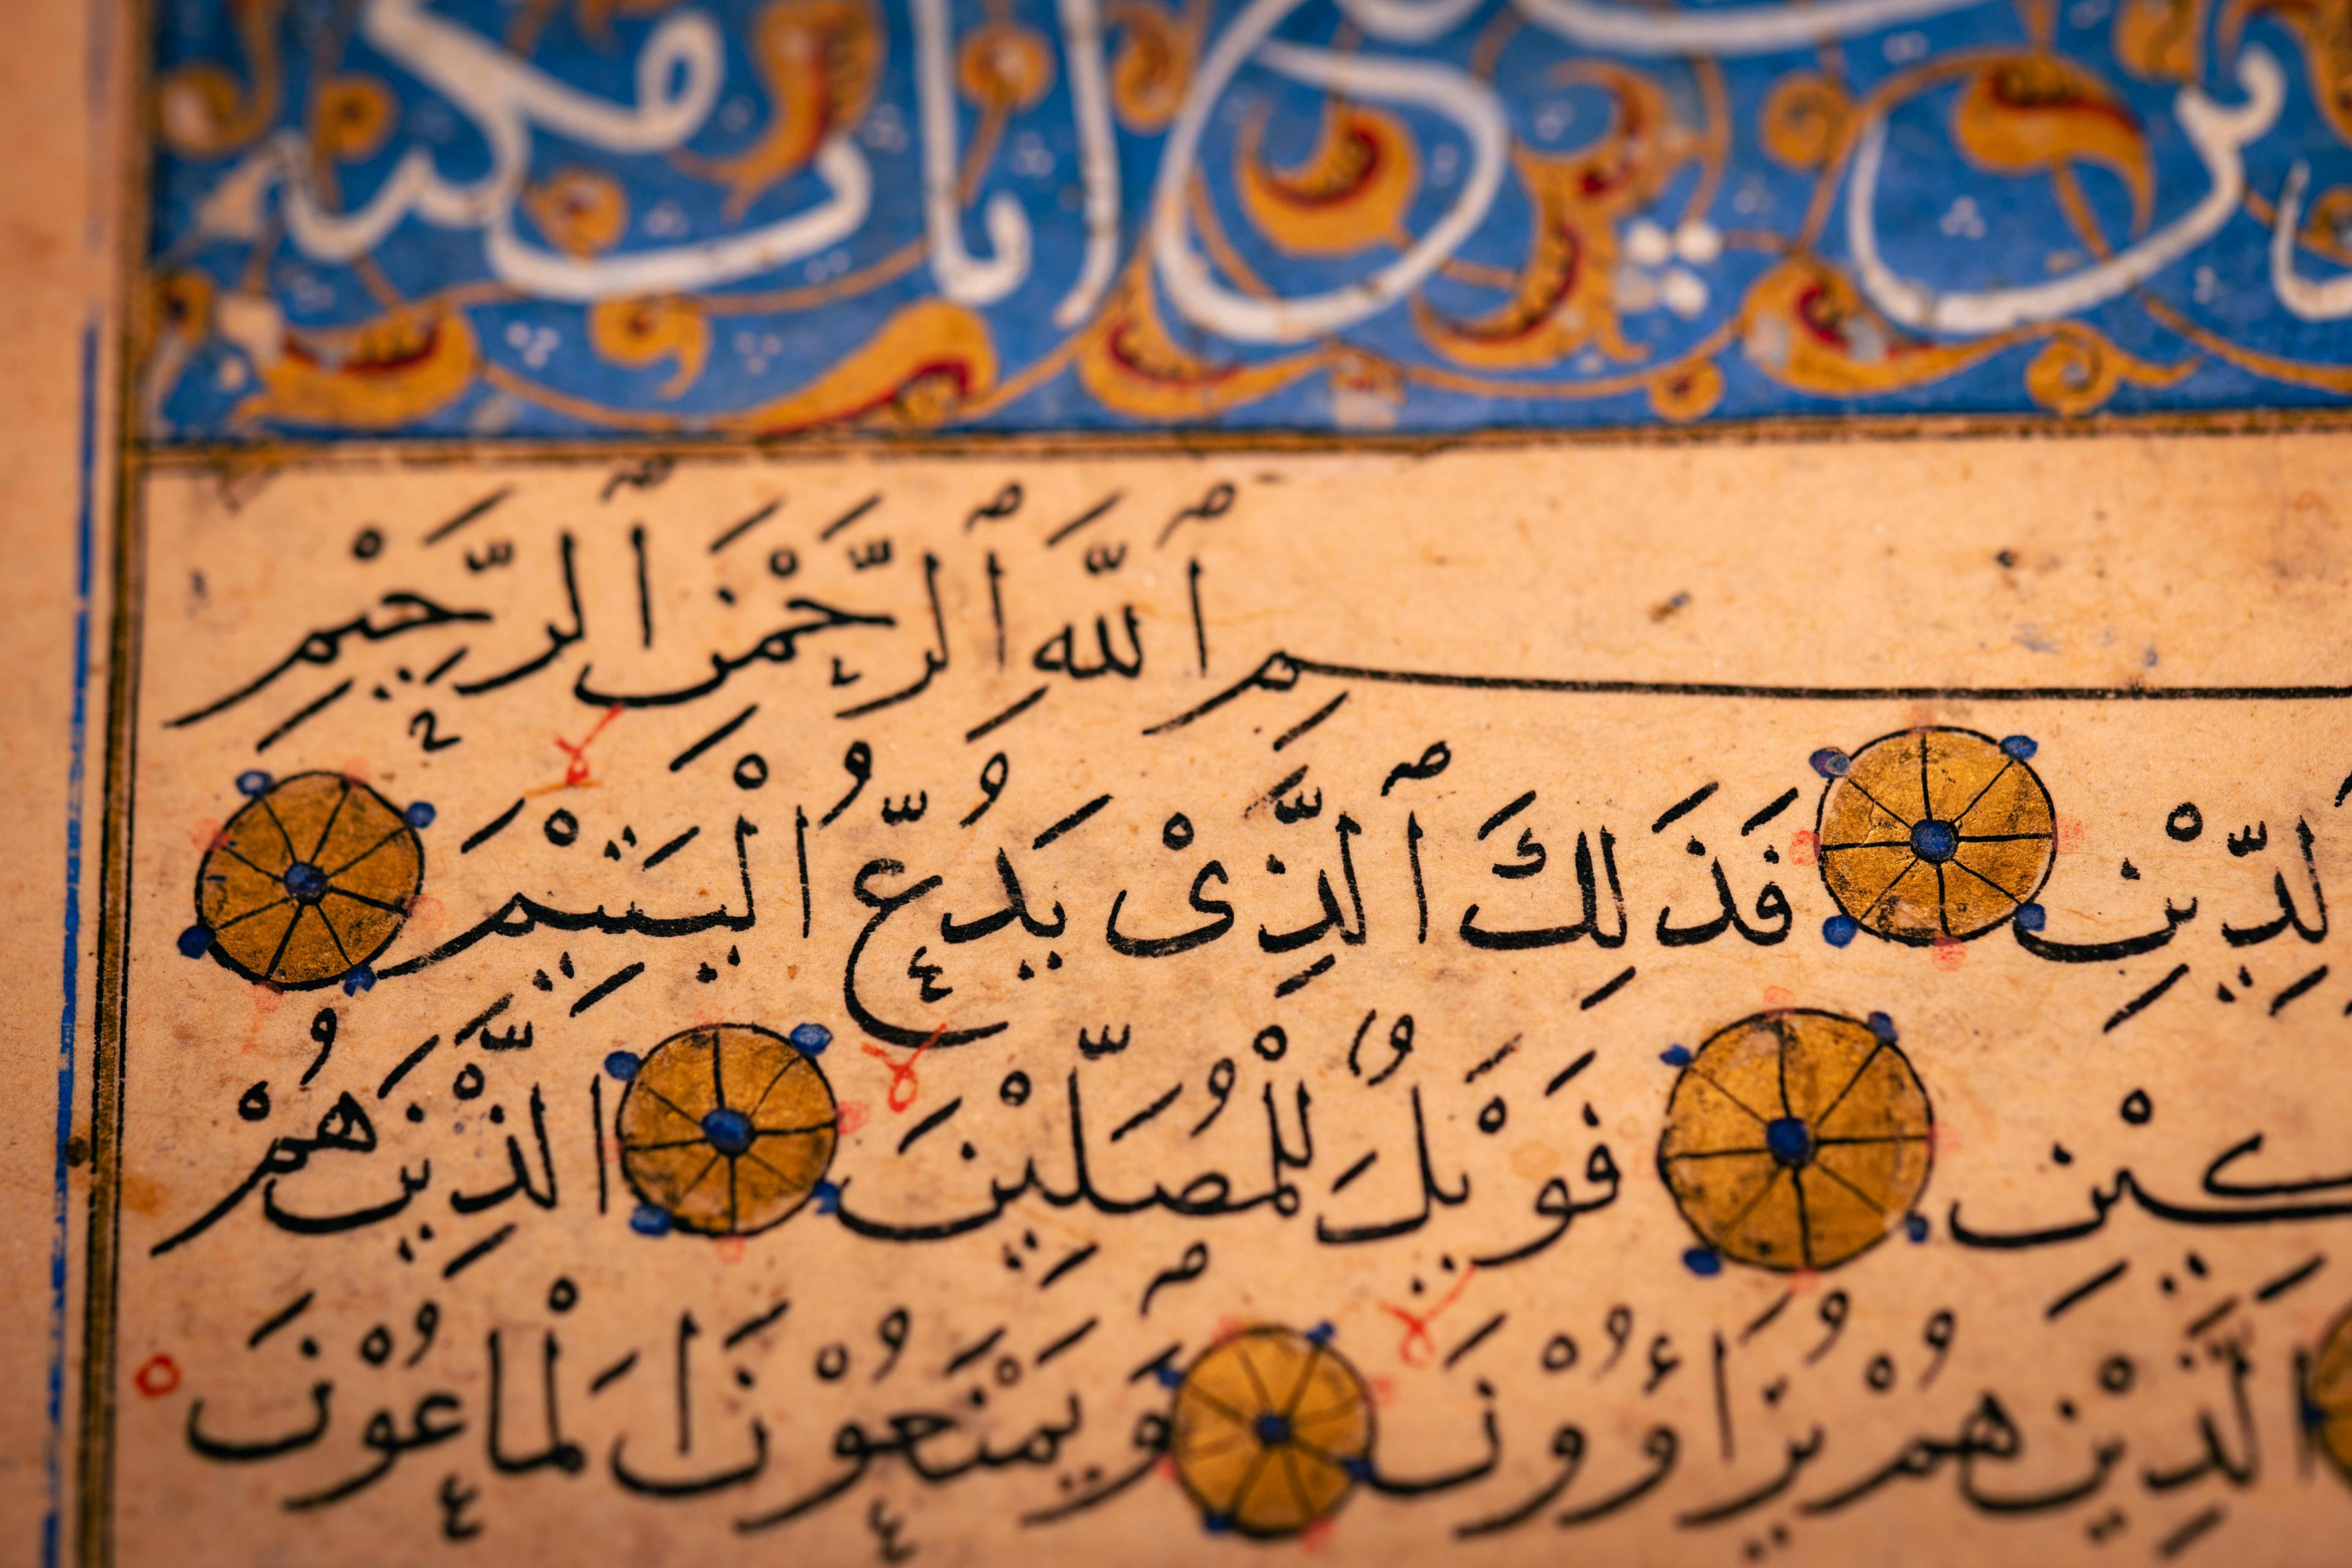 آيات مكية
سم ٱلله ٱلرَّحْمٰنِ ٱلرَّحِيْمِ
لدِّيْنِ فَذَلِكَ ٱلَّذِىْ يَدُعُّ الْيَتِيْمَ
كِيْنِ فَوَيْلٌ لِلْمُصَلِّيْنَ الَّذِيْنَ هُمْ
الَّذِيْنَ هُمْ يُرَاءُوْنَ وَيَمْنَعُوْنَ الْمَاعُوْنَ